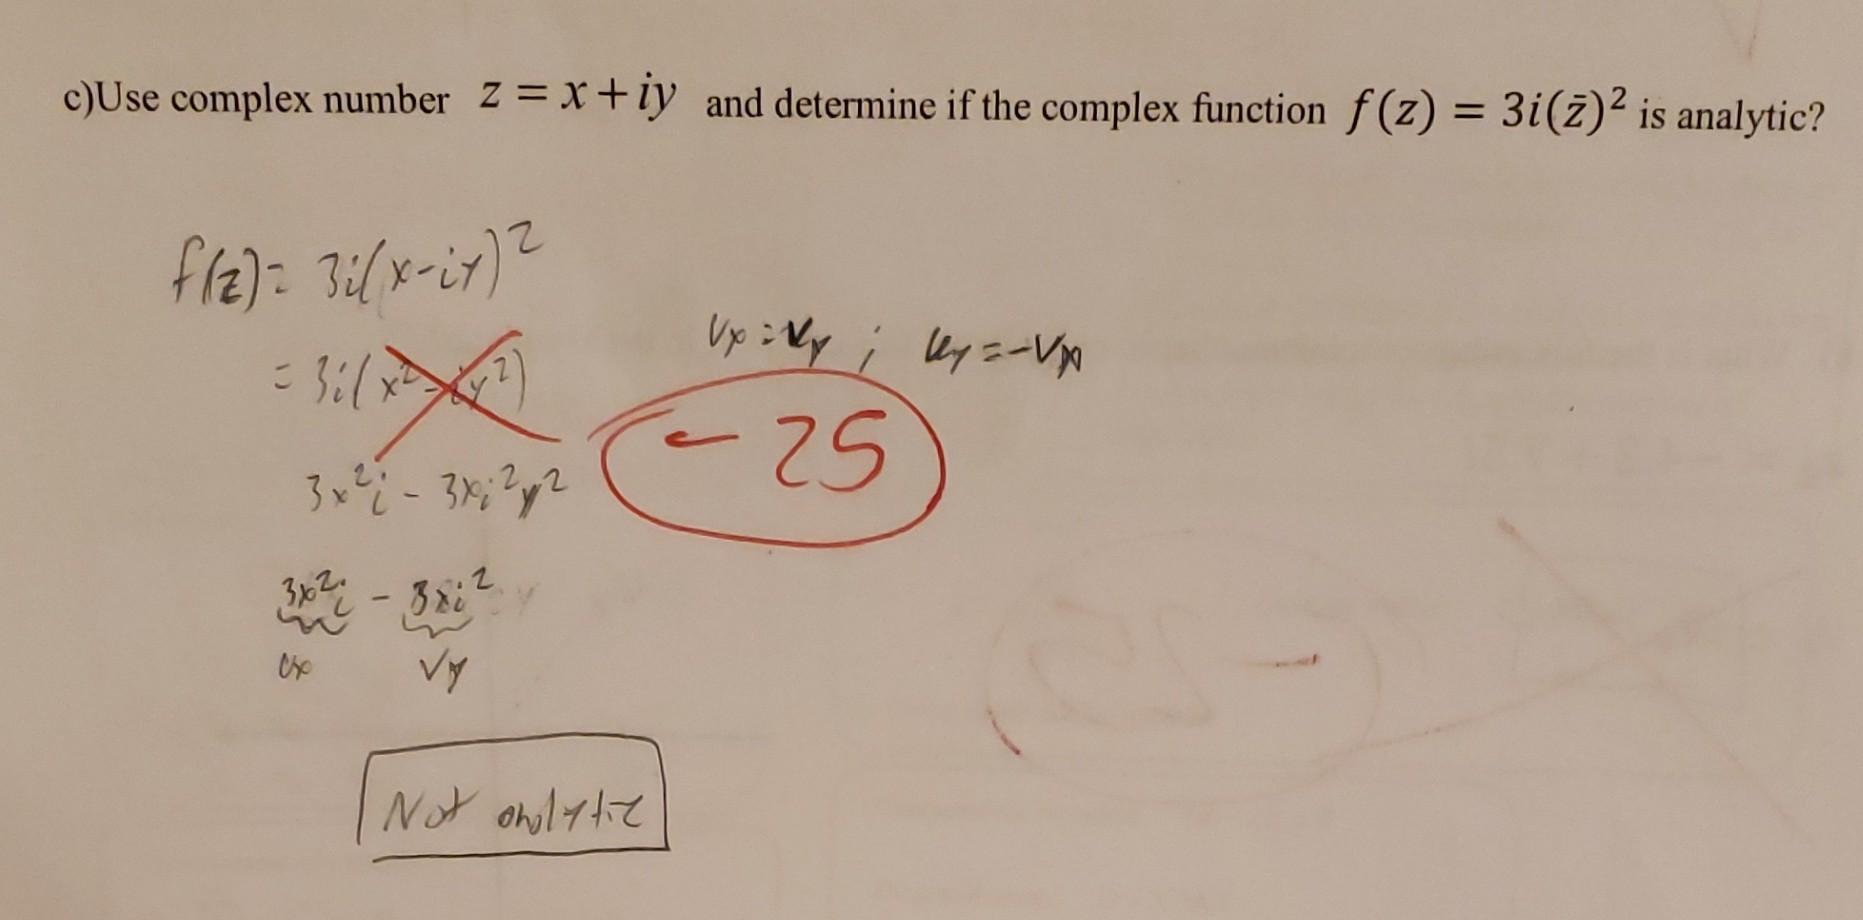 c)Use complex number z = x+iy and determine if the complex function f(z) = 3i(z̄)² is analytic?
f(z)= 3i(x-iy)²
= 3i(x²-iy²)
Ux = Vy ; Uy = -Vx
-25
3x²i - 3xi²y²
3x²i - 3xi²
Ux Vy
Not analytic